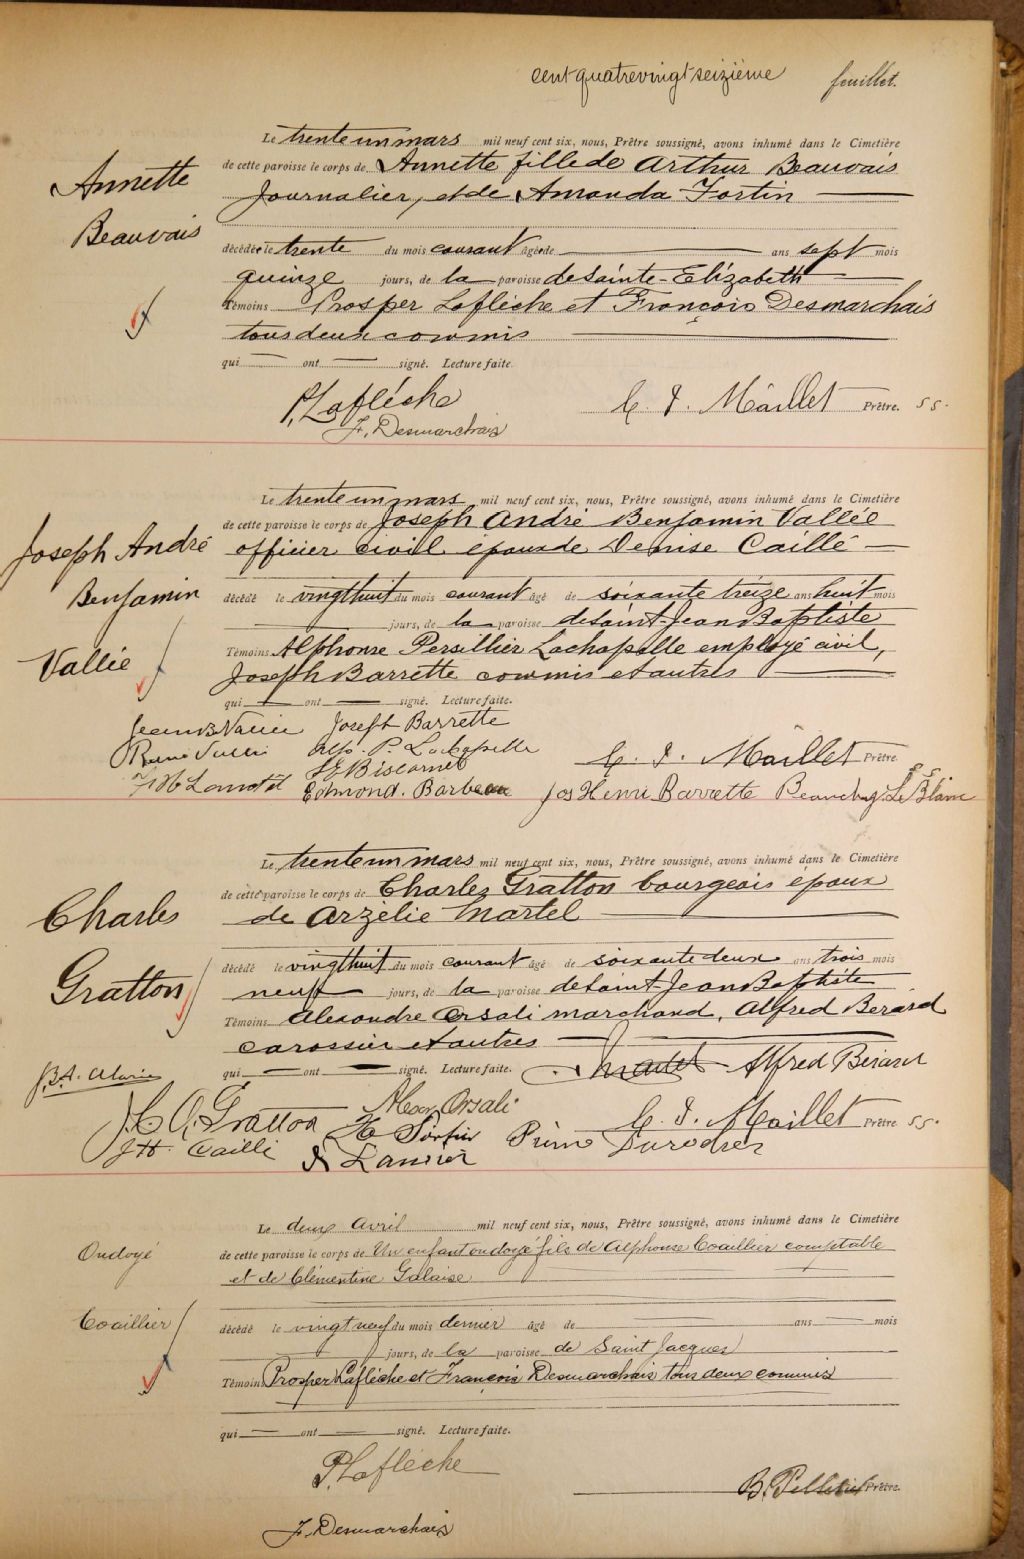 cent quatrevingt seizième feuillet.
Le trente un mars mil neuf cent six, nous, Prêtre soussigné, avons inhumé dans le Cimetière
de cette paroisse le corps de Annette fille de Arthur Beauvais
Annette
Journalier, et de Amanda Fortin
Beauvais
décédée le trente du mois courant âgée de ans sept mois
quinze jours, de la paroisse de Sainte-Elizabeth
Témoins Prosper Laflèche et François Desmarchais
tous deux commis
qui ont signé. Lecture faite.
P. Laflèche
Maillet Prêtre. S S.
F. Desmarchais
Le trente un mars mil neuf cent six, nous, Prêtre soussigné, avons inhumé dans le Cimetière
de cette paroisse le corps de Joseph André Benjamin Vallée
Joseph André
officier civil époux de Denise Caillé
Benjamin
décédé le vingt huit du mois courant âgé de soixante treize ans huit mois
jours, de la paroisse de Saint-Jean Baptiste
Vallée
Témoins Alphonse Persillier Lachapelle employé civil,
Joseph Barrette commis et autres
qui ont signé. Lecture faite.
Joseph Barrette
Alp. P. Lachapelle
Maillet Prêtre.
Edmond. Barbeau Jos Henri Barrette LeBlanc
Le trente un mars mil neuf cent six, nous, Prêtre soussigné, avons inhumé dans le Cimetière
de cette paroisse le corps de Charles Gratton bourgeois epoux
Charles
de Arzélie Martel
Gratton
décédé le vingt huit du mois courant âgé de soixante deux ans trois mois
neuf jours, de la paroisse de Saint-Jean Baptiste
Témoins Alexandre Orsali marchand, Alfred Berard
carossier et autres
qui ont signé. Lecture faite. Alfred Bérard
Gratton Alex. Orsali
Maillet Prêtre S S.
J. H. Caillé
Le deux Avril mil neuf cent six, nous, Prêtre soussigné, avons inhumé dans le Cimetière
Ondoyé
de cette paroisse le corps de Un enfant ondoyé fils de Alphonse Coaillier comptable
et de Clémentine Galaise
Coaillier
décédé le vingt neuf du mois dernier âgé de ans mois
jours, de la paroisse de Saint Jacques
Témoins Prosper Laflèche et François Desmarchais tous deux commis
qui ont signé. Lecture faite.
P. Laflèche
B. Pelletier Prêtre.
F. Desmarchais